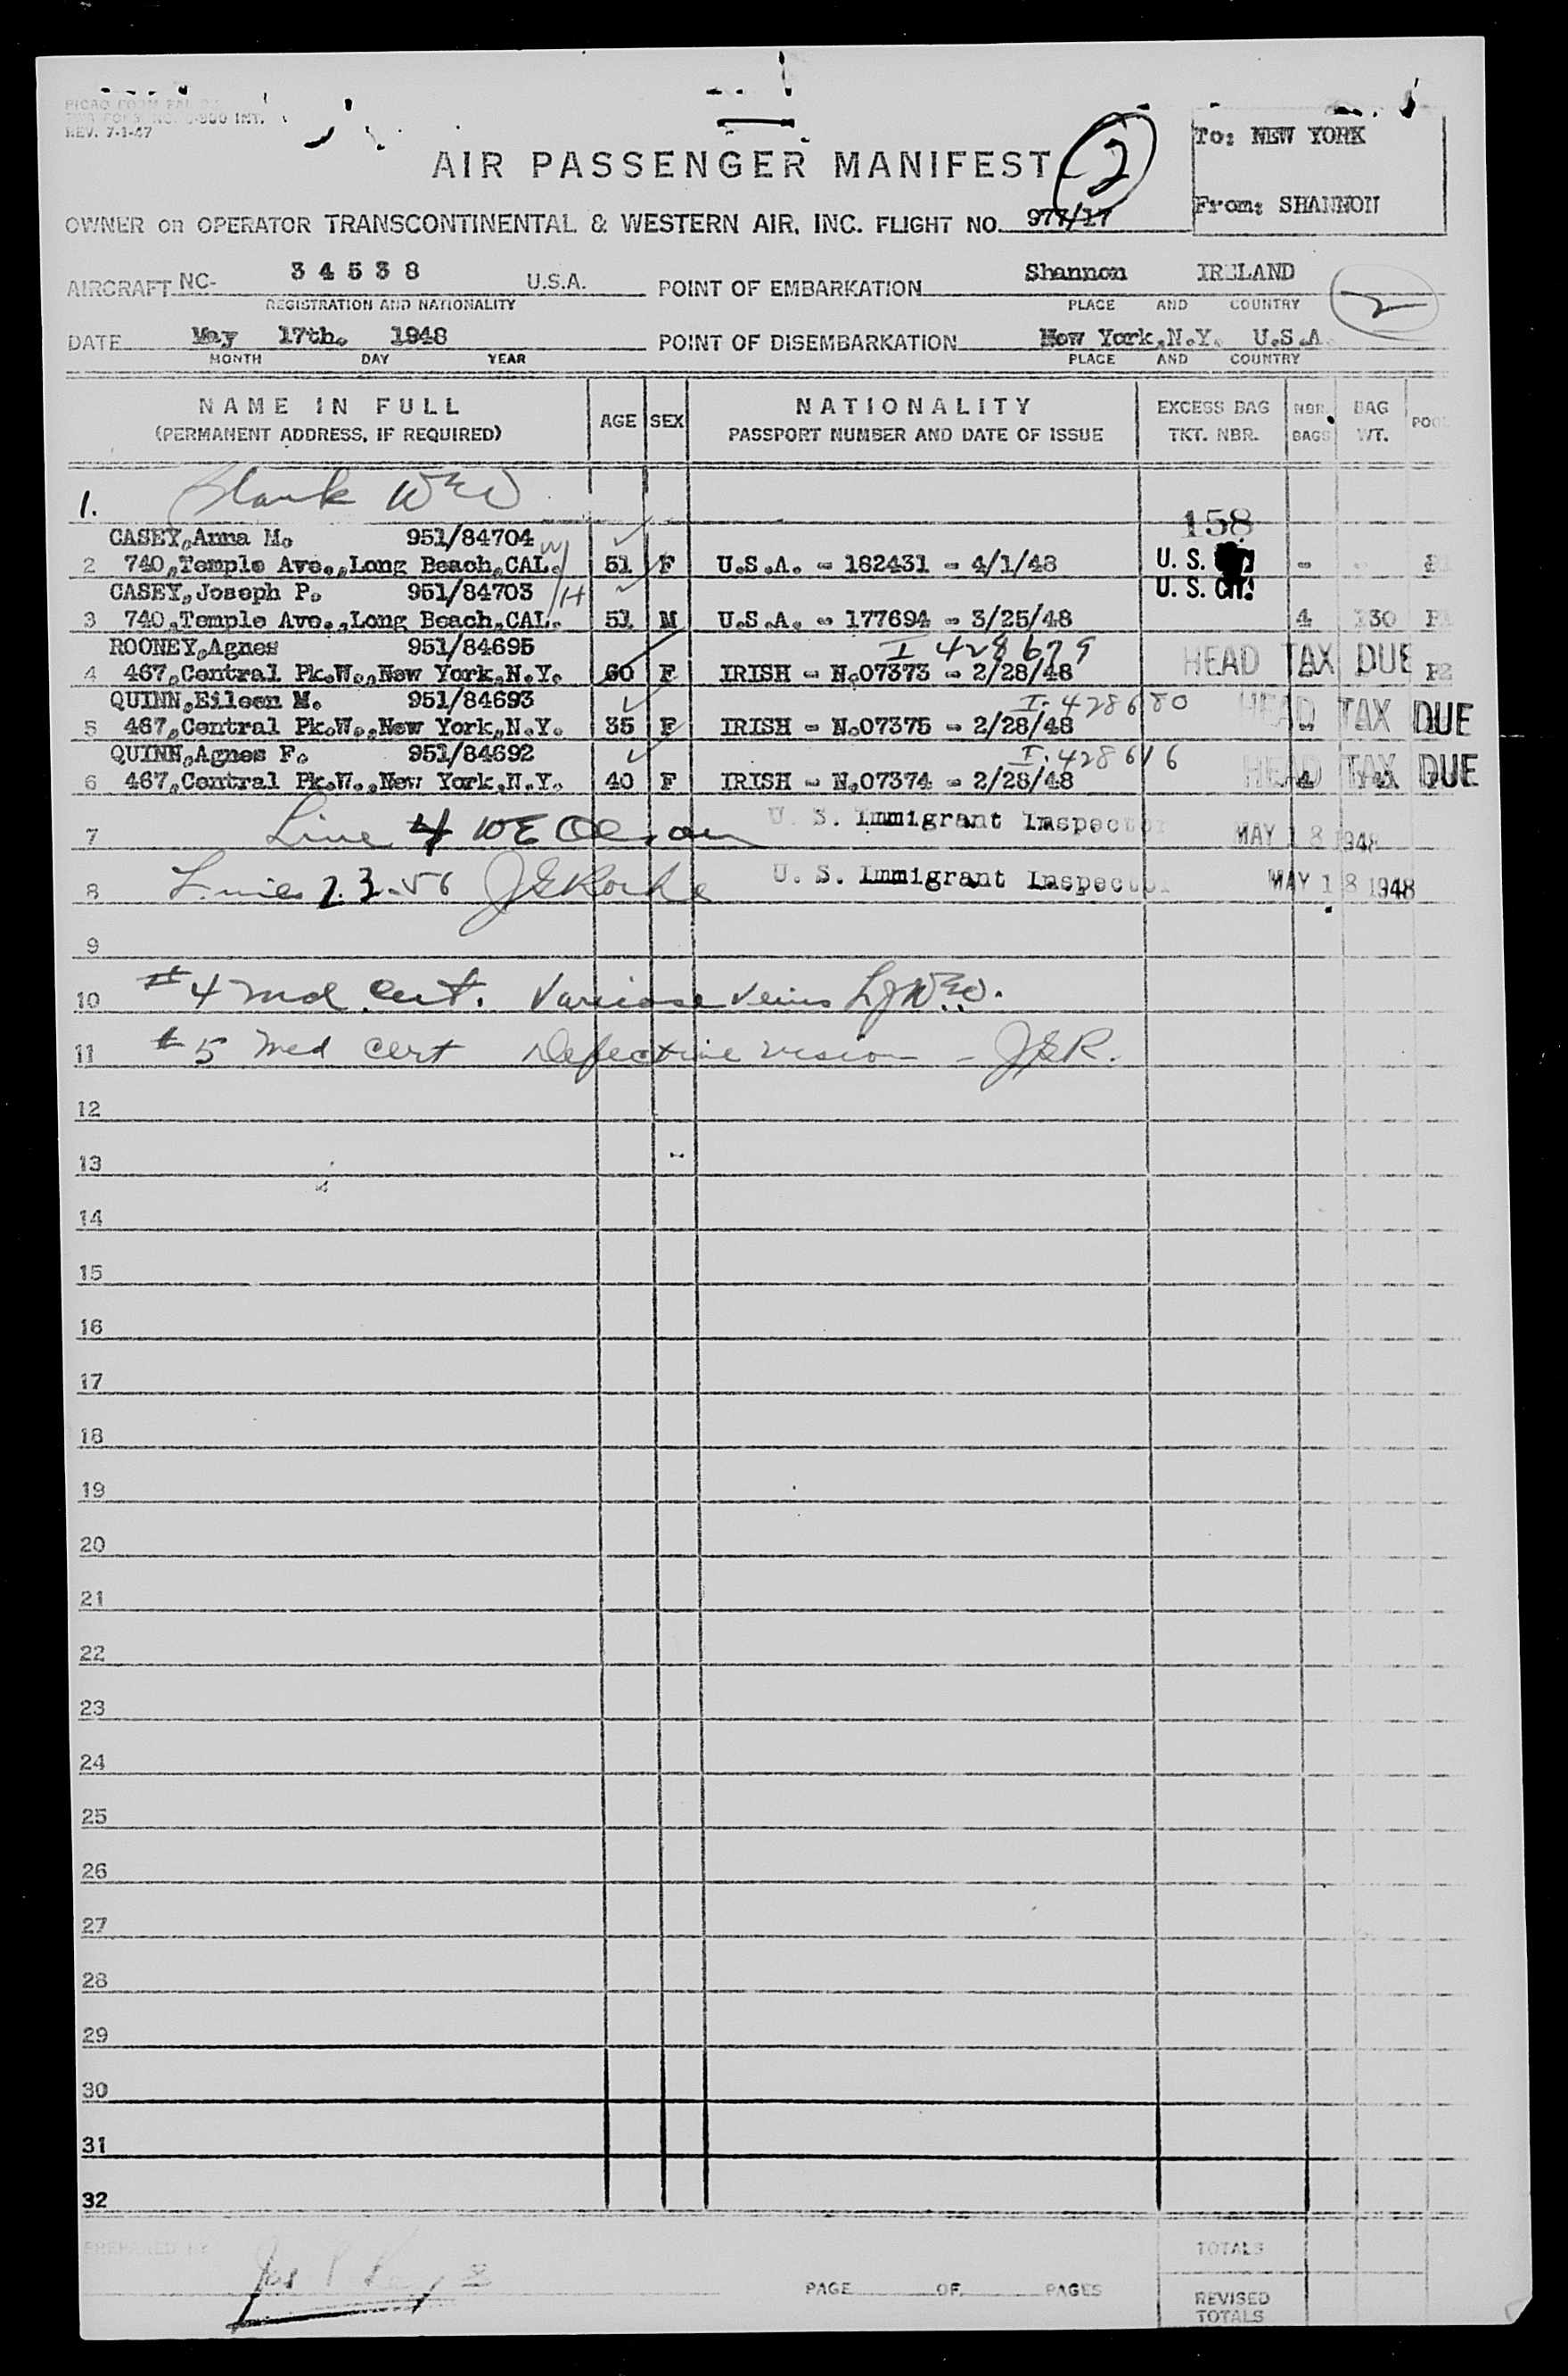 REV. 7-1-47
AIR PASSENGER MANIFEST
2
To: NEW YORK
From: SHANNON
OWNER OR OPERATOR TRANSCONTINENTAL & WESTERN AIR, INC. FLIGHT NO. 977/17
AIRCRAFT NC- 34538 U.S.A. POINT OF EMBARKATION Shannon IRELAND
REGISTRATION AND NATIONALITY PLACE AND COUNTRY
2
DATE May 17th. 1948 POINT OF DISEMBARKATION New York,N.Y. U.S.A.
MONTH DAY YEAR PLACE AND COUNTRY
NAME IN FULL AGE SEX NATIONALITY EXCESS BAG NBR. BAG
(PERMANENT ADDRESS, IF REQUIRED) PASSPORT NUMBER AND DATE OF ISSUE TKT. NBR. BAGS WT.
1. Blank WEO
158
CASEY,Anna M. 951/84704 W
2 740,Temple Ave.,Long Beach,CAL. 51 F U.S.A. - 182431 - 4/1/48 U. S. -
CASEY,Joseph P. 951/84703 H U. S. Cit.
3 740,Temple Ave.,Long Beach,CAL. 51 M U.S.A. - 177694 - 3/25/48 4 130
ROONEY,Agnes 951/84695 I 428679
4 467,Central Pk.W.,New York,N.Y. 60 F IRISH - N.07373 - 2/28/48 HEAD TAX DUE P2
QUINN,Eileen M. 951/84693 I.428680
5 467,Central Pk.W.,New York,N.Y. 35 F IRISH - N.07375 - 2/28/48 HEAD TAX DUE
QUINN,Agnes F. 951/84692 I.428616
6 467,Central Pk.W.,New York,N.Y. 40 F IRISH - N.07374 - 2/28/48 HEAD TAX DUE
7 Line 4 WE Olson U. S. Immigrant Inspector MAY 18 1948
8 Lines 2.3-56 JERoche U. S. Immigrant Inspector MAY 18 1948
9
10 #4 Md Cert. Varicose Veins WEO.
11 #5 Med cert Defective vision - JER.
12
13
14
15
16
17
18
19
20
21
22
23
24
25
26
27
28
29
30
31
32
PREPARED BY
TOTALS
PAGE OF PAGES
REVISED
TOTALS